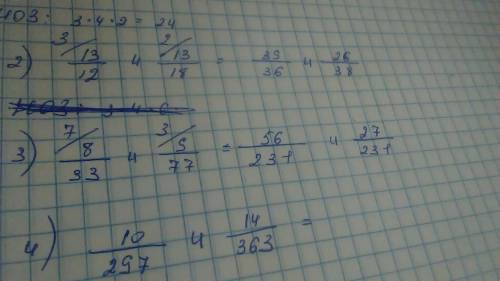 НОЗ: 3·4·2 = 24
2) 3/ 13/12 и 2/ 13/18 = 39/36 и 26/38
3) 7/ 8/33 и 3/ 5/77 = 56/231 и 27/231
4) 10/297 и 14/363 =